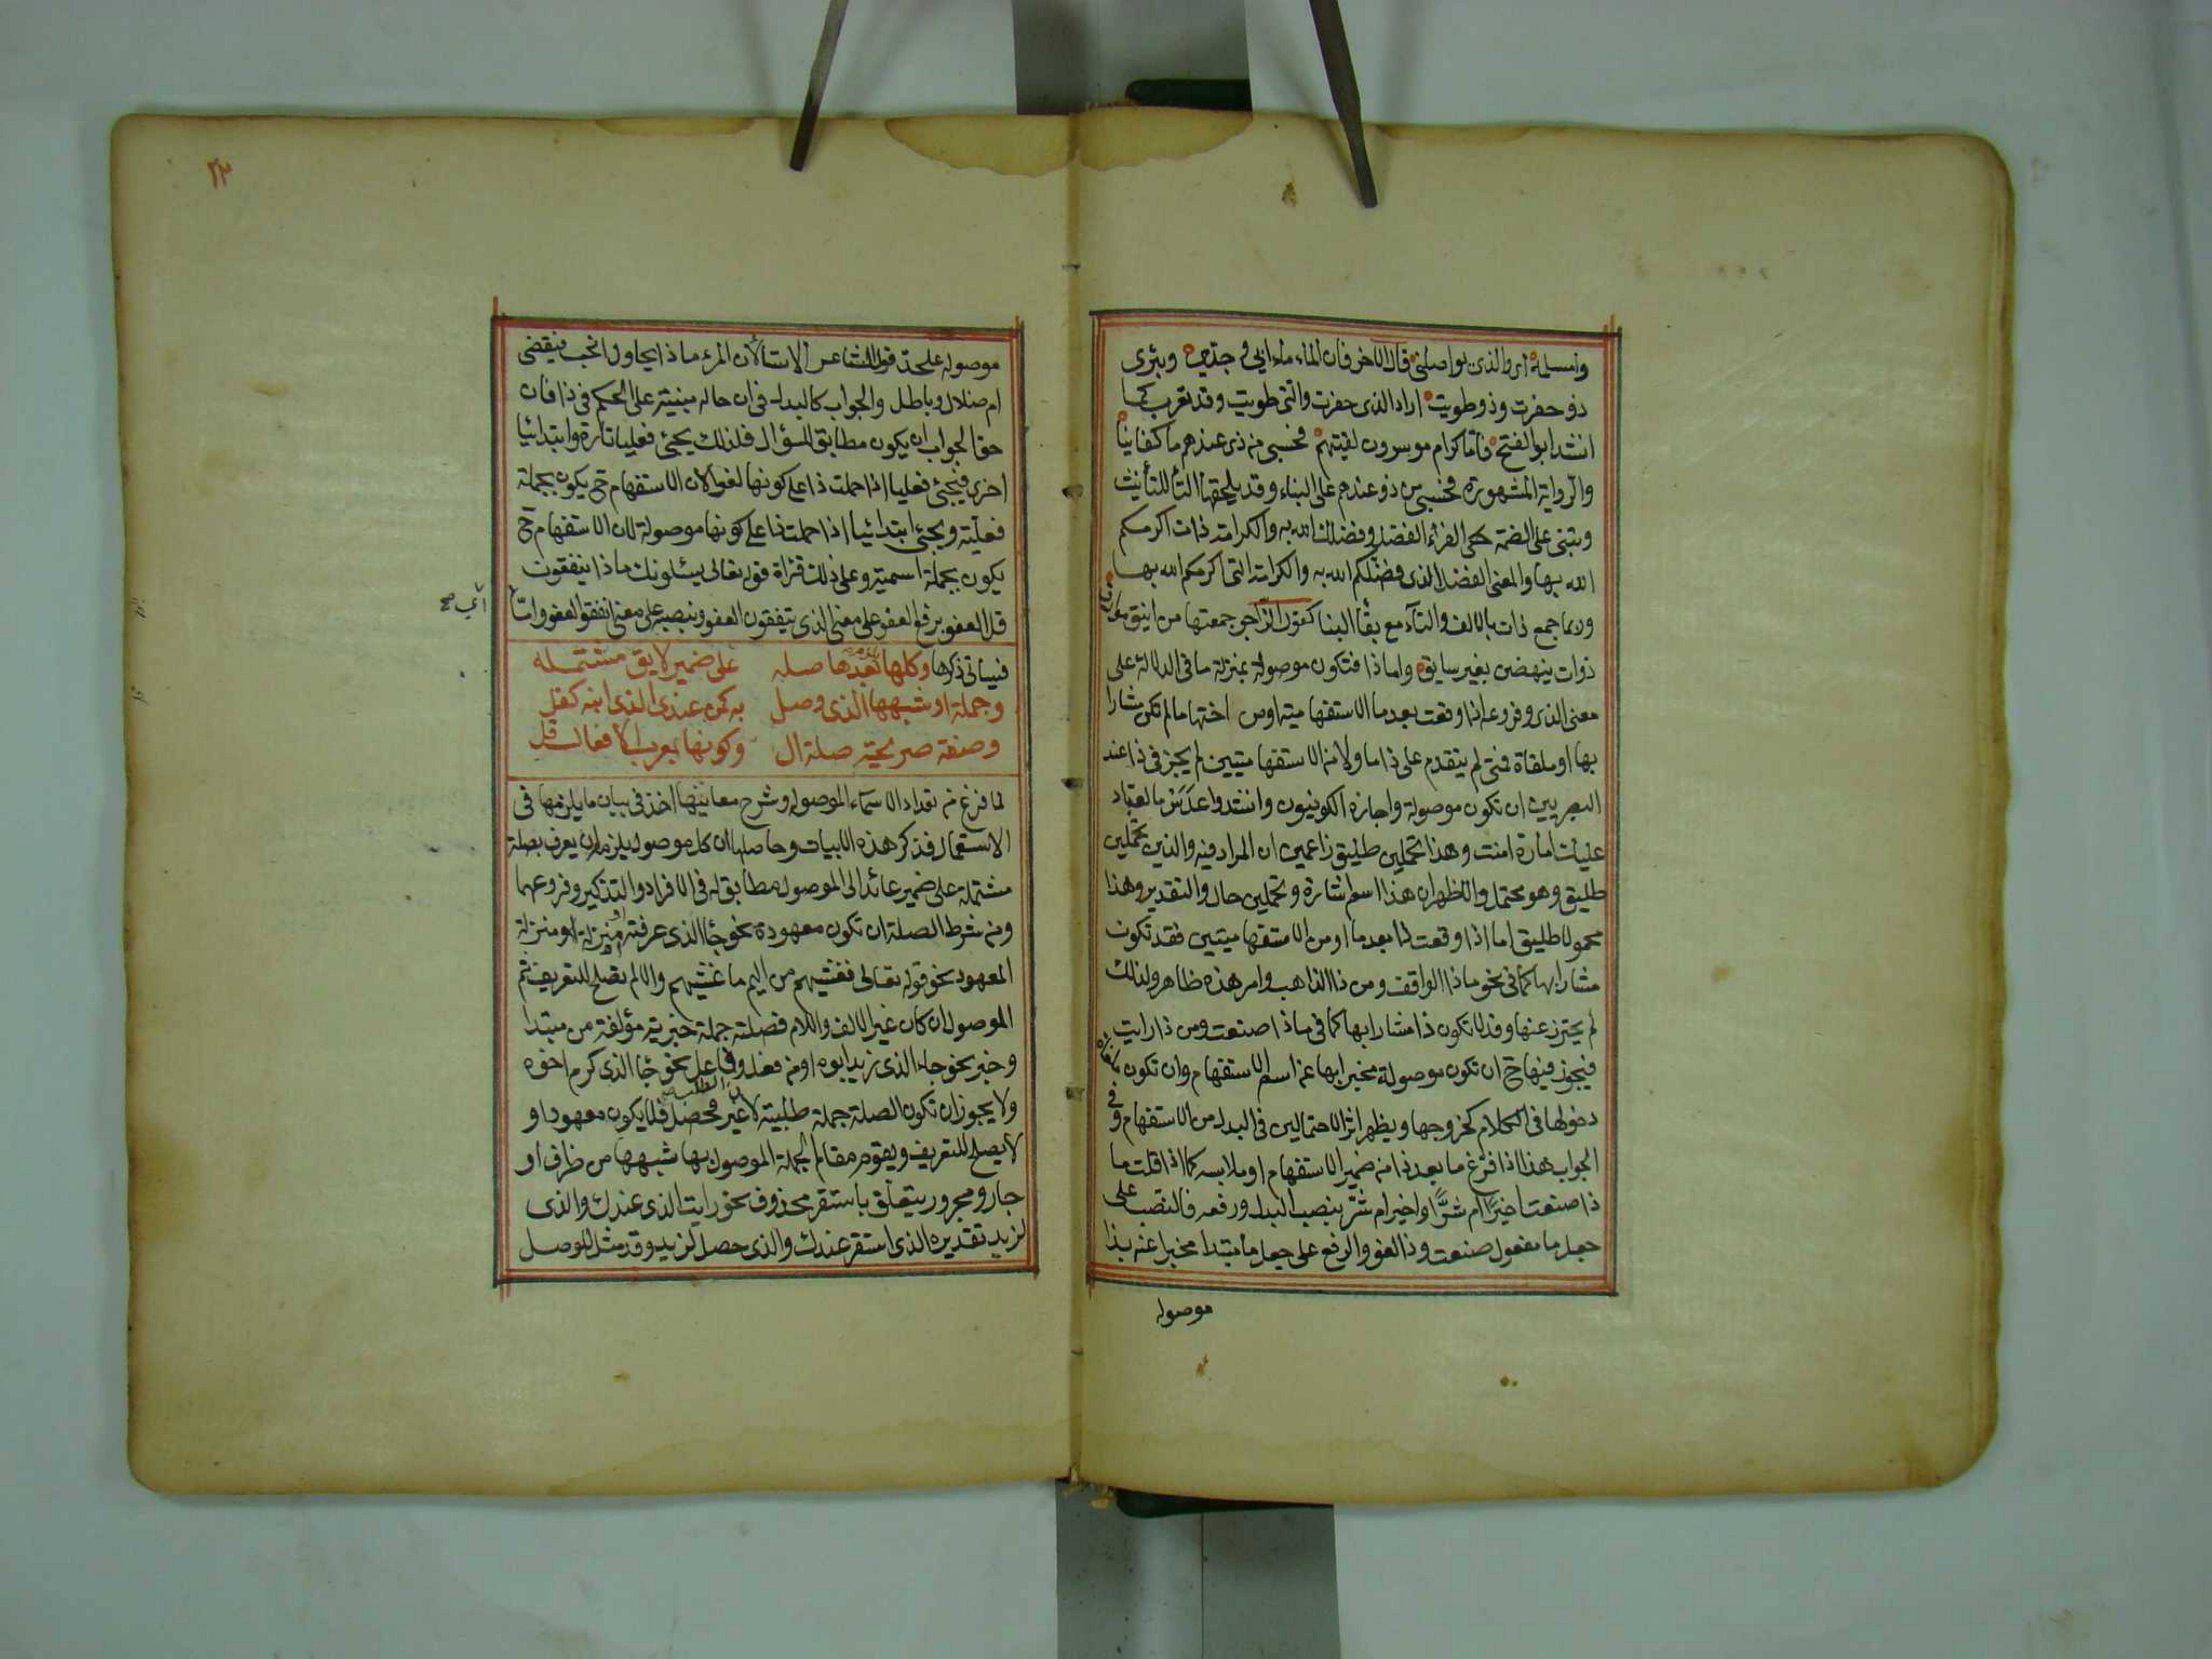 وامسلمه اى والذى يواصلنى وقال الآخر فان الماء ماء ابى وجدى وبئرى
ذو حفرت وذو طويت اراد الذى حفرت والتى طويت وقد تعرب كما
انشد ابو الفتح فاما كرام موسرون لقيتهم فحسبى من ذى عندهم ما كفانيا
والرواية المشهورة فحسبى من ذو عندهم على البناء وقد يلحقها التأ للتأنيث
وتبنى على الضمة حكى الفراء الفضل ذو فضلكم الله به والكرامة ذات اكرمكم
الله بها والمعنى الفضل الذى فضلكم الله به والكرامة التى اكرمكم الله بها
وربما جمع ذات بالالف والتآء مع بقأ البنا كقول الراجز جمعتها من اينق موارق
ذوات ينهضن بغير سايق واما ذا فتكون موصولة بمنزلة ما فى الدلالة على
معنى الذى وفروعه اذا وقعت بعد ما الاستفهامية او من اختها ما لم تكن مشارا
بها او ملقاة فمتى لم يتقدم على ذا ما ولا من الاستفهاميتين لم يجز فى ذا عند
البصريين ان تكون موصولة واجازه الكوفيون وانشدوا عدس ما لعباد
عليك امارة امنت وهذا تحملين طليق زاعمين ان المراد فيه والذين تحملين
طليق وهو محتمل والظهران هذا اسم اشارة وتحملين حال والتقدير وهذا
محمولا طليق اما اذا وقعت ذا بعد ما او من الاستفهاميتين فقد تكون
مشارا بها كما فى نحو ماذا الواقف ومن ذا الذاهب وامر هذه ظاهر ولذلك
لم يحترز عنها وقد لا تكون ذا مشارا بها كما فى ماذا صنعت ومن ذا رايت
فيجوز فيها ح ان تكون موصولة مخبرا بها عن اسم الاستفهام وان تكون ملغاة
دخولها فى الكلام كخروجها ويظهر اثر الاحتمالين فى البدل من الاستفهام وفى
الجواب هذا اذا فرغ ما بعد ذا من ضمير الاستفهام او ملابسه كما اذا قلت ما
ذا صنعت اخيرًا ام شرًّا او اخير ام شر بنصب البدل ورفعه فالنصب على
جعل ما مفعول صنعت وذا لغو والرفع على جعل ما مبتدا مخبرا عنه بذا
موصوله
٢٣
موصوله على حد قول الشاعر الا تسألان المرء ماذا يحاول انحب فيقضى
ام ضلال وباطل والجواب كالبدل فى ان حاله مبنية على الحكم فى ذا فان
حق الجواب ان يكون مطابق للسؤال فلذلك يجئ فعليا تارة وابتدائيا
اخرى فيجئ فعليا اذا حملت ذا على كونها لغوا لان الاستفهام ح يكون بجملة
فعلية ويجئ ابتدائيا اذا حملت ذا على كونها موصولة لان الاستفهام ح
يكون بجملة اسمية وعلى ذلك قراة قوله تعالى يسئلونك ماذا ينفقون
قل العفو برفع العفو على معنى الذى ينفقون العفو وبنصبه على معنى انفقوا العفو وامّا
اىّ صح
فسياتى ذكرها وكلها بعدها صله على ضمير لايق مشتمله
وجملة او شبهها الذى وصل به كمن عندى الذى ابنه كفل
وصفة صريحة صلة ال وكونها بمعرب الأفعال قل
لما فرغ من تعداد الاسماء الموصوله وشرح معانيها اخذ فى بيان ما يلزمها فى
الاستعمال فذكر هذه الابيات وحاصلها ان كل موصول يلزم ان يعرف بصلة
مشتملة على ضمير عائد الى الموصول مطابق له فى الافراد والتذكير وفروعهما
ومن شرط الصلة ان تكون معهودة نحو جأ الذى عرفته او منزلة منزلة
المعهود نحو قوله تعالى فغشيهم من اليم ما غشيهم والا لم تصلح للتعريف ثم
الموصول ان كان غير الالف واللام فصلته جملة خبرية مؤلفة من مبتدا
وخبر نحو جاء الذى زيد ابوه او من فعل وفاعل نحو جأ الذى كرم اخوه
ولا يجوز ان تكون الصلة جملة طلبية لا غير محصل فلا يكون معهودا و
لا يصلح للتعريف ويقوم مقام الجملة الموصول بها شبهها من ظرف او
جار ومجرور يتعلق باستقر محذوف نحو رايت الذى عندك والذى
لزيد تقديره الذى استقر عندك والذى حصل لزيد وقد مثل للوصل